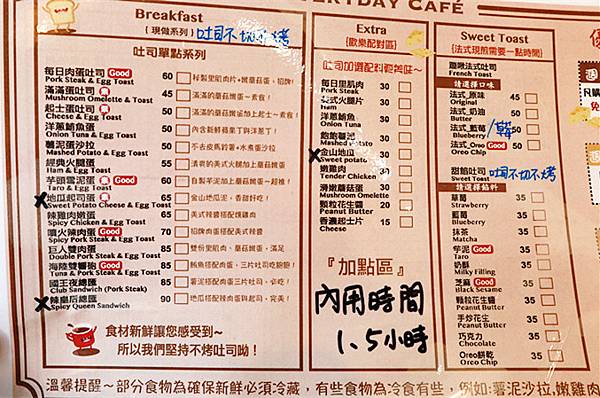 ERYDAY CAFÉ
Breakfast
{ 現做系列 }
吐司不切不烤
吐司單點系列
每日肉蛋吐司 Good 60
Pork Steak & Egg Toast
滿滿蛋吐司 45
Mushroom Omelette & Toast
滿滿的蘑菇嫩蛋~素食！
起士蛋吐司 45
Cheese & Egg Toast
洋蔥鮪魚蛋 50
Onion Tuna & Egg Toast
薯泥蛋吐司 50
Mashed Potato & Egg Toast
經典火腿蛋 55
Ham & Egg Toast
芋頭雪泥蛋 Good 60
Taro & Egg Toast
地瓜起司蛋 65
Sweet Potato Cheese & Egg Toast
辣雞肉嫩蛋 65
Spicy Chicken & Egg Toast
美式辣醬搭配嫩雞肉
噴火辣肉蛋 Good 70
Spicy Pork Steak & Egg Toast
招牌肉蛋搭配美式辣醬
巨人雙肉蛋 85
Double Pork Steak & Egg Toast
海陸雙響砲 Good 85
Tuna & Pork Steak & Egg Toast
國王夜總匯 85
Club Sandwich (Pork Steak)
辣皇后總匯 90
Spicy Queen Sandwich
食材新鮮讓您感受到~
所以我們堅持不烤吐司呦！
Extra
{歡樂配對區}
吐司加選配料輕美味~
每日里肌肉 30
Pork Steak
美式火腿片 30
Ham
洋蔥鮪魚 30
Onion Tuna
飽飽薯泥 30
Mashed Potato
金山地瓜 30
Sweet potato
嫩雞肉 30
Tender Chicken
滑嫩蘑菇蛋 30
Mushroom Omelette
顆粒花生醬 20
Peanut Butter
香濃起士片 15
Cheese
『加點區』
內用時間
1.5小時
Sweet Toast
{法式現煎需要一點時間}
蹦啾法式吐司
French Toast
請選擇口味
法式_原味 45
Original
法式_奶油 50
Butter
法式_藍莓/草莓 50
Blueberry
法式_Oreo Good 50
Oreo Chip
甜餡吐司 吐司不切不烤
Sweet Toast
請選擇餡料
草莓 35
Strawberry
藍莓 35
Blueberry
抹茶 35
Matcha
芋泥 Good 35
Taro
奶酥 35
Milky Filling
芝麻 Good 35
Black Sesame
顆粒花生醬 35
Peanut Butter
手炒花生 35
Peanut Butter
巧克力 35
Chocolate
Oreo餅乾 35
Oreo Chip
溫馨提醒~部分食物為確保新鮮必須冷藏，有些食物為冷食有些，例如:薯泥沙拉,嫩雞肉